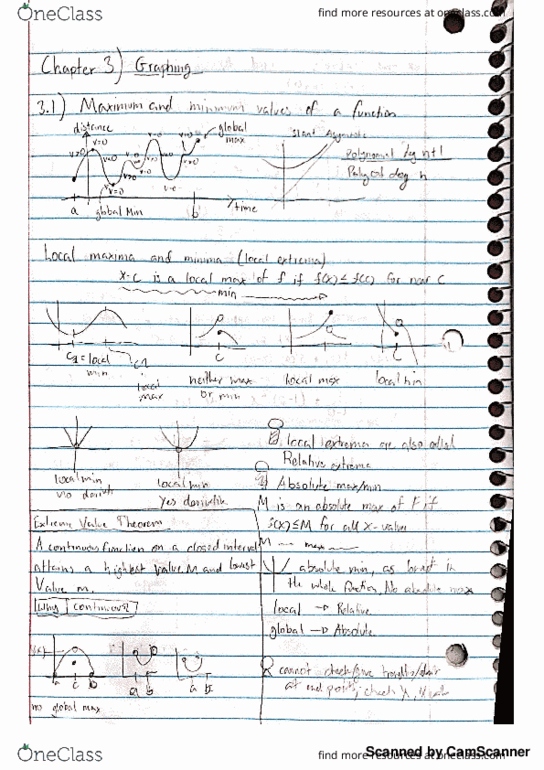 OneClass
find more resources at oneclass.com
Chapter 3) Graphing
3.1) Maximum and minimum values of a function
distance
global
max
v=0
v=0
v>0
v<0
v=0
v>0
a
global Min
b
time
Slant Asymptote
Polynomial deg n+1
Polynomial deg n
Local maxima and minima (local extrema)
x=c is a local max of f if f(x)≤f(c) for near c
min
c
c
c
c₂=local
min
local
max
neither max
or min
local max
local min
local min
no deriv
local min
yes derivative
local extrema are also called
Relative extrema
Absolute max/min
M is an absolute max of F if
f(x)≤M for all x-value
M
max
Extreme Value Theorem
A continuous function on a closed interval
attains a highest value M and lowest
Value m.
Why continuous?
absolute min, as lowest in
the whole function, No absolute max
local → Relative
global → Absolute
a
c
b
a
b
a
b
no global max
cannot check
at end points, check
OneClass
find more resources at oneclass.com
Scanned by CamScanner